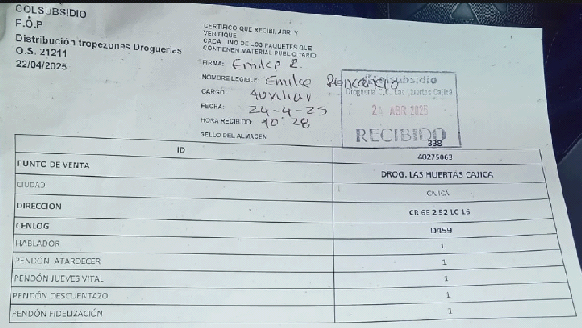 COLSUBSIDIO
F.O.P
Distribución tropezunas Droguerias
O.S. 21211
22/04/2025
CERTIFICO QUE RECIBI, ABRI Y
VERIFIQUE
CADA UNO DE LOS PAQUETES QUE
CONTIENEN MATERIAL PUBLICITARIO
FIRMA: Emilce R.
NOMBRE LEGIBLE: Emilce
CARGO: Auxiliar
FECHA: 24-4-25
HORA RECIBIDO 10:28
SELLO DEL ALMACEN
24 ABR 2025
RECIBIDO
338
ID 40275063
PUNTO DE VENTA DROG. LAS HUERTAS CAJICA
CIUDAD CAJICA
DIRECCION
CENLOG
HABLADOR 1
PENDÓN ATARDECER 1
PENDÓN JUEVES VITAL 1
PENDÓN DESCUENTAZO 1
PENDÓN FIDELIZACIÓN 1